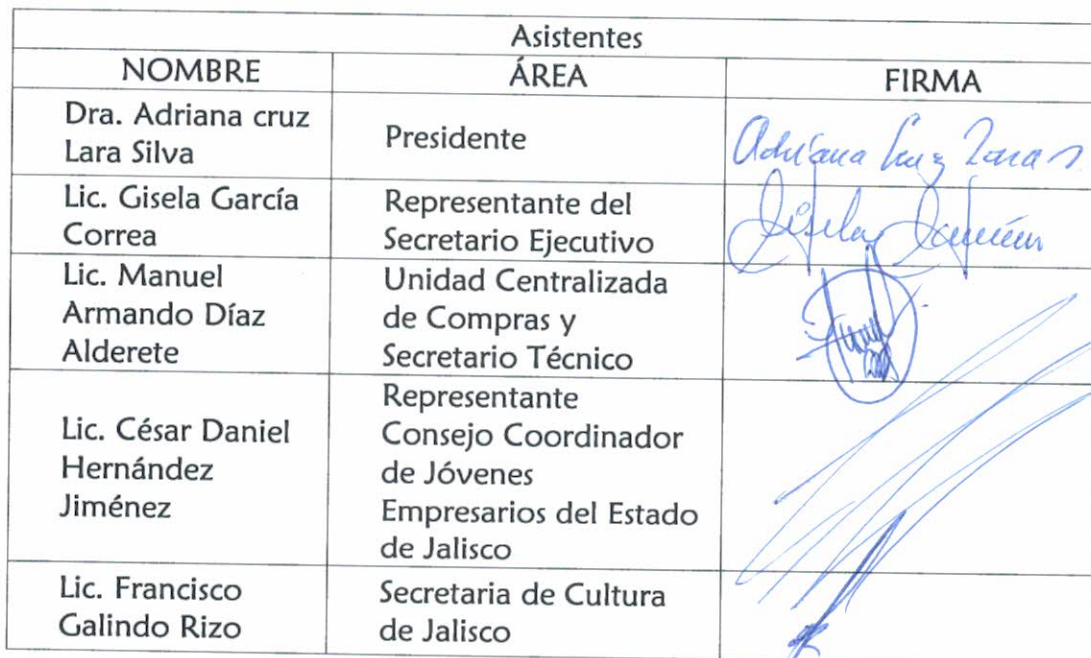 Asistentes
NOMBRE ÁREA FIRMA
Dra. Adriana cruz
Lara Silva
Presidente
Adriana Cruz Lara S.
Lic. Gisela García
Correa
Representante del
Secretario Ejecutivo
Gisela
Lic. Manuel
Armando Díaz
Alderete
Unidad Centralizada
de Compras y
Secretario Técnico
Lic. César Daniel
Hernández
Jiménez
Representante
Consejo Coordinador
de Jóvenes
Empresarios del Estado
de Jalisco
Lic. Francisco
Galindo Rizo
Secretaria de Cultura
de Jalisco